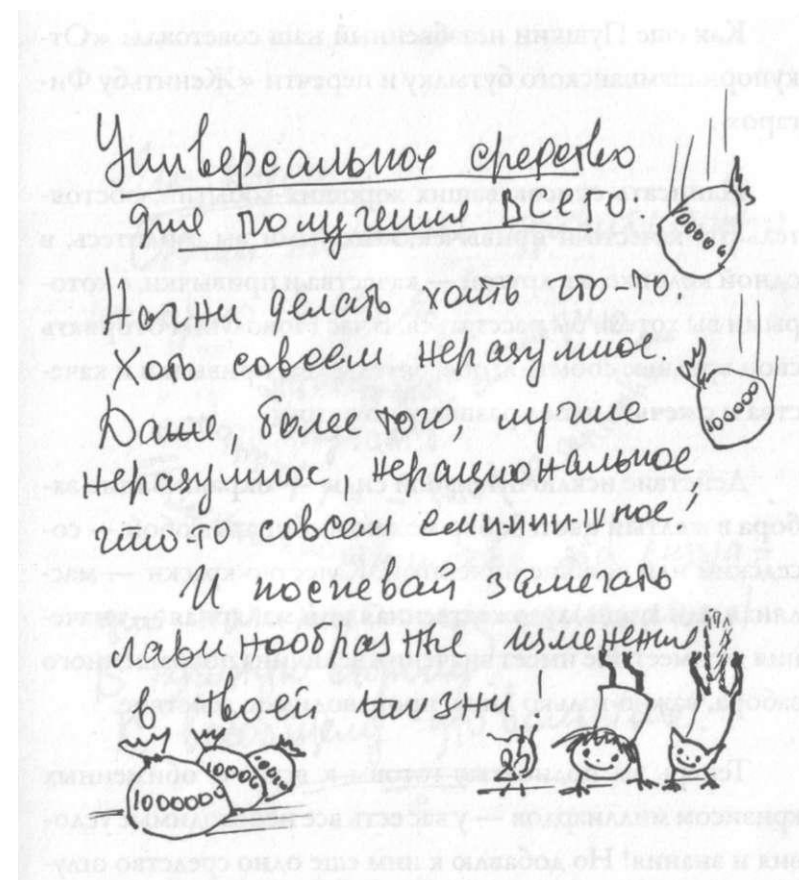 Универсальное средство
для получения ВСЕГО:
100000
Начни делать хоть что-то,
хоть совсем неразумное.
Даже, более того, лучше –
100000
неразумное, нерациональное,
что-то совсем
И поспевай замечать
лавинообразные изменения
в твоей жизни!
100000